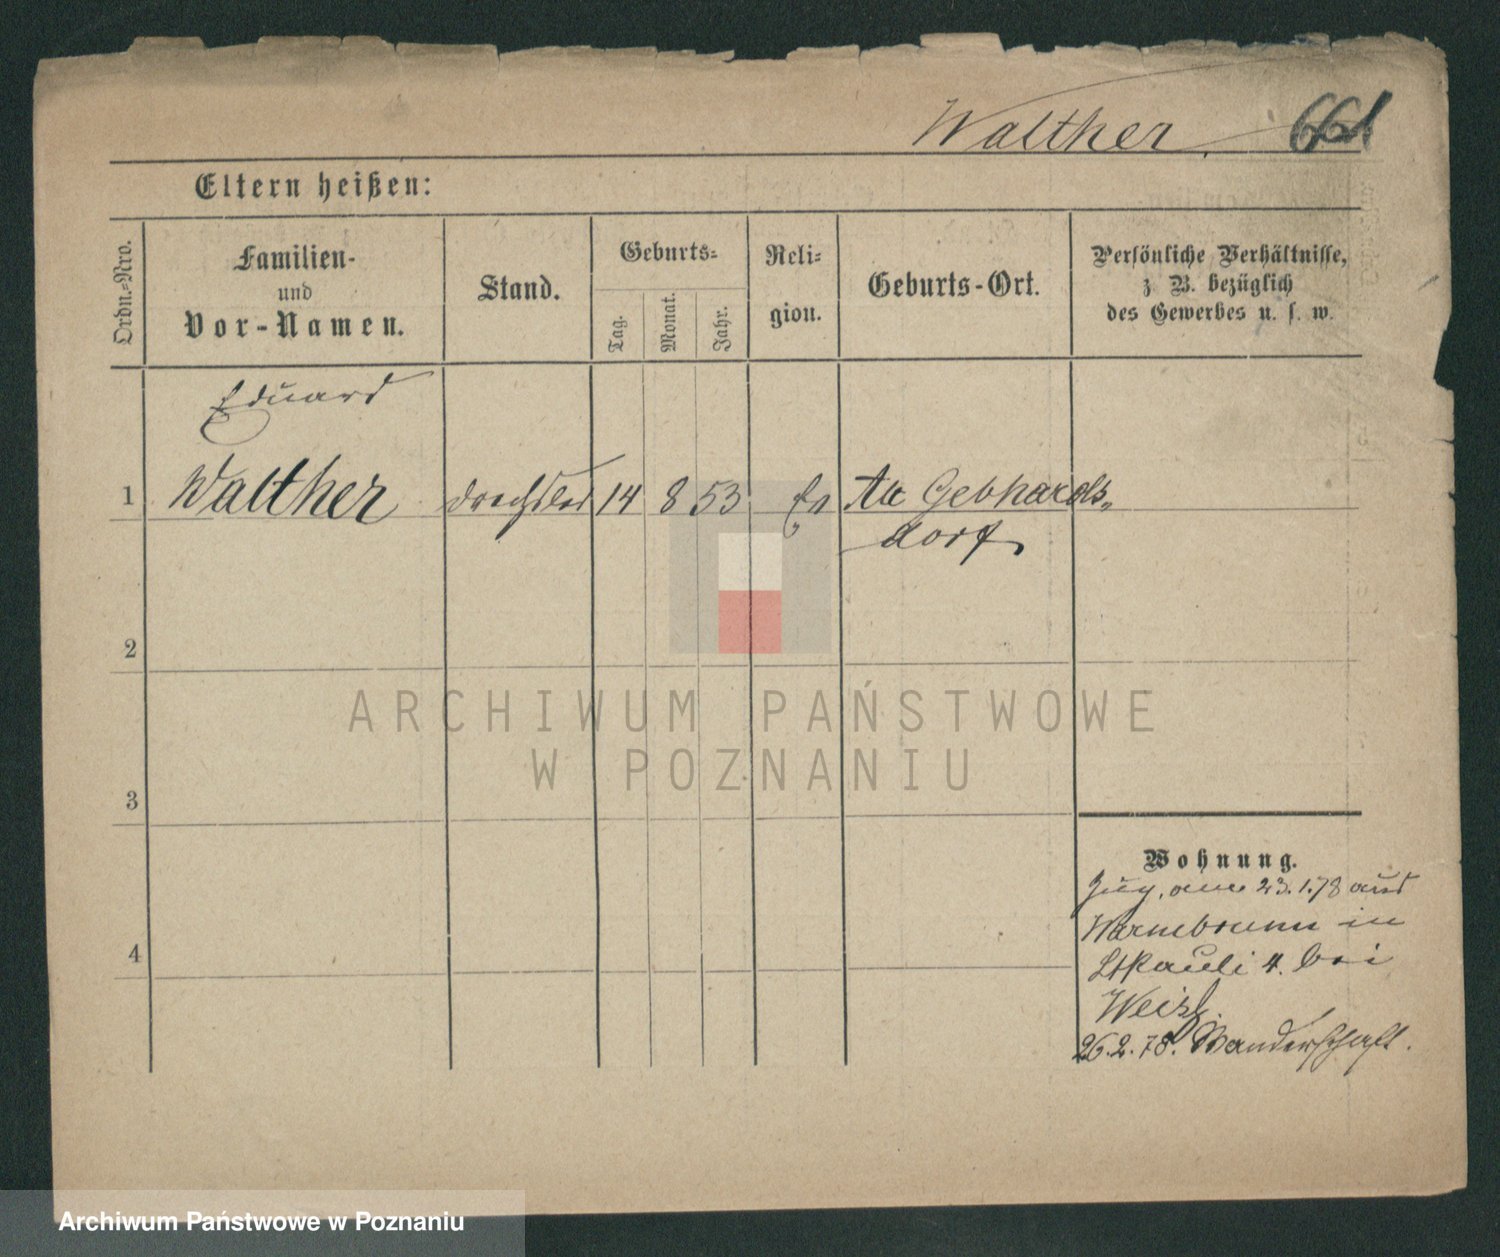 Walther. 661
Eltern heißen:
Ordn.-Nro.
Familien-
und
Vor-Namen.
Stand.
Geburts-
Tag.
Monat.
Jahr.
Reli-
gion.
Geburts-Ort.
Persönliche Verhältnisse,
z B. bezüglich
des Gewerbes u. s. w.
Eduard
1 Walther Drechsler 14 8 53 Ev Alt Gebhards-
dorf
2
3
4
Wohnung.
Zug. am 23.1.78 aus
Warmbrunn in
St Pauli 4. bei
26.2.78. Wanderschaft.
ARCHIWUM PAŃSTWOWE
W POZNANIU
Archiwum Państwowe w Poznaniu